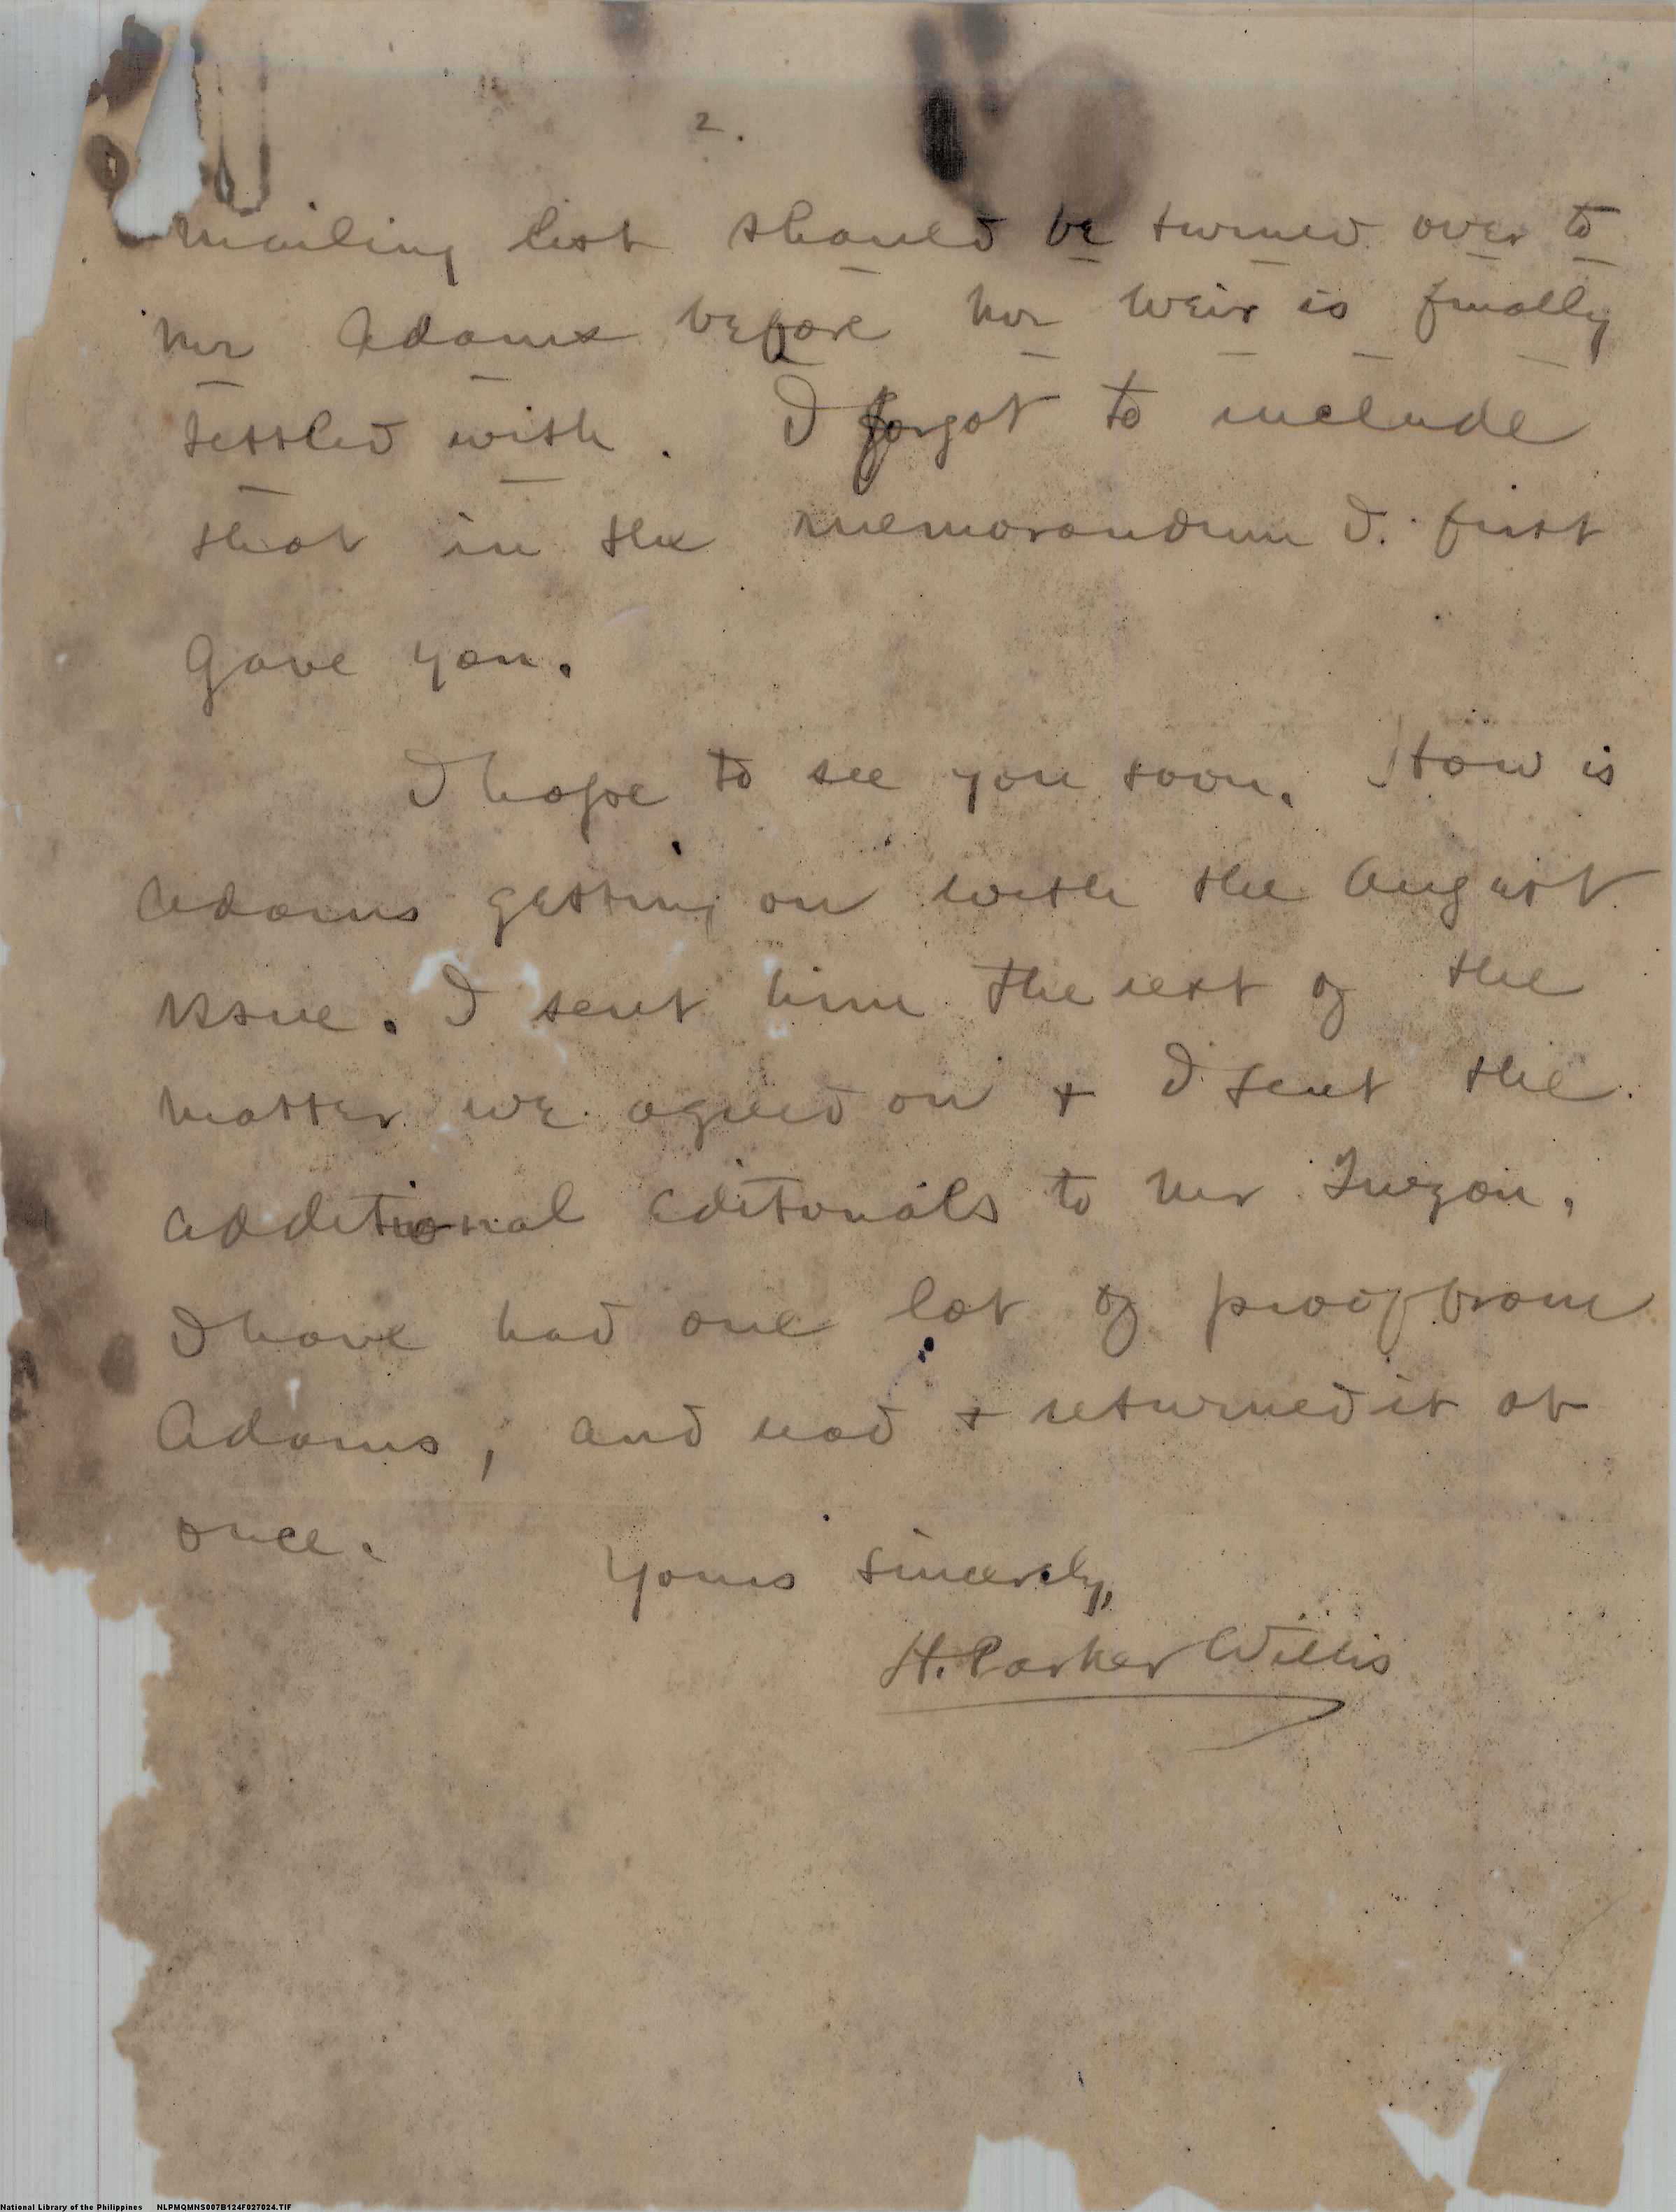 2.
mailing list should be turned over to
Mr Adams before Mr Weir is finally
settled with. I forgot to include
that in the memorandum I first
gave you.
I hope to see you soon. How is
Adams getting on with the August
issue. I sent him the rest of the
matter we agreed on & I sent the
additional editorials to Mr
I have had one lot of proof from
Adams, and read & returned it at
once.
Yours sincerely,
H. Parker Willis
National Library of the Philippines NLPMQMNS007B124F027024.TIF